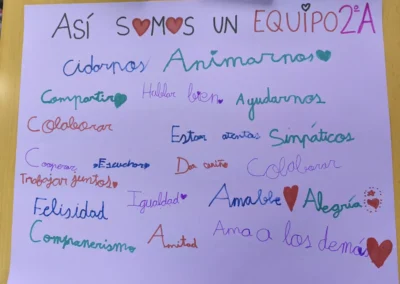 ASÍ SOMOS UN EQUIPO 2ºA
Cidarnos Animarnos
Compartir Hablar bien Ayudarnos
Colaborar Estar atentas Simpáticos
Cooperar Escuchar Dar cariño Colaborar
Trabajar juntos
Igualdad Amabbe Alegría
Felisidad
Compranerismo Amitad Ama a los demás